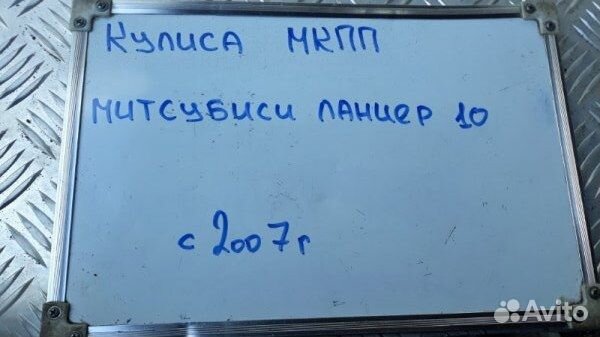 Кулиса МКПП
Митсубиси Ланцер 10
с 2007г
Avito